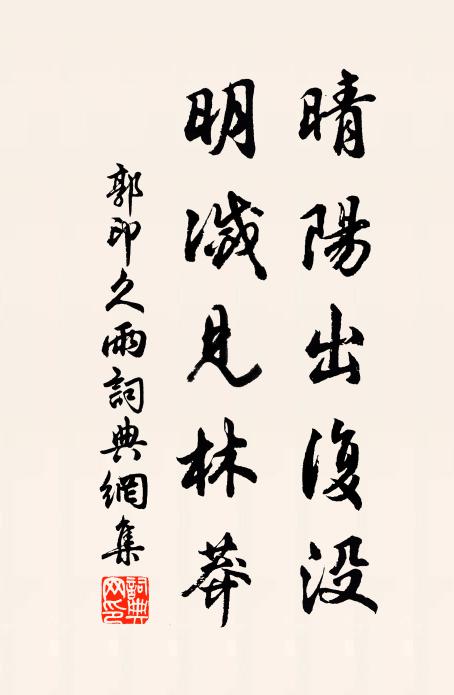 晴陽出復没
明滅見林莽
郭印久雨詞典網集
詞典网印